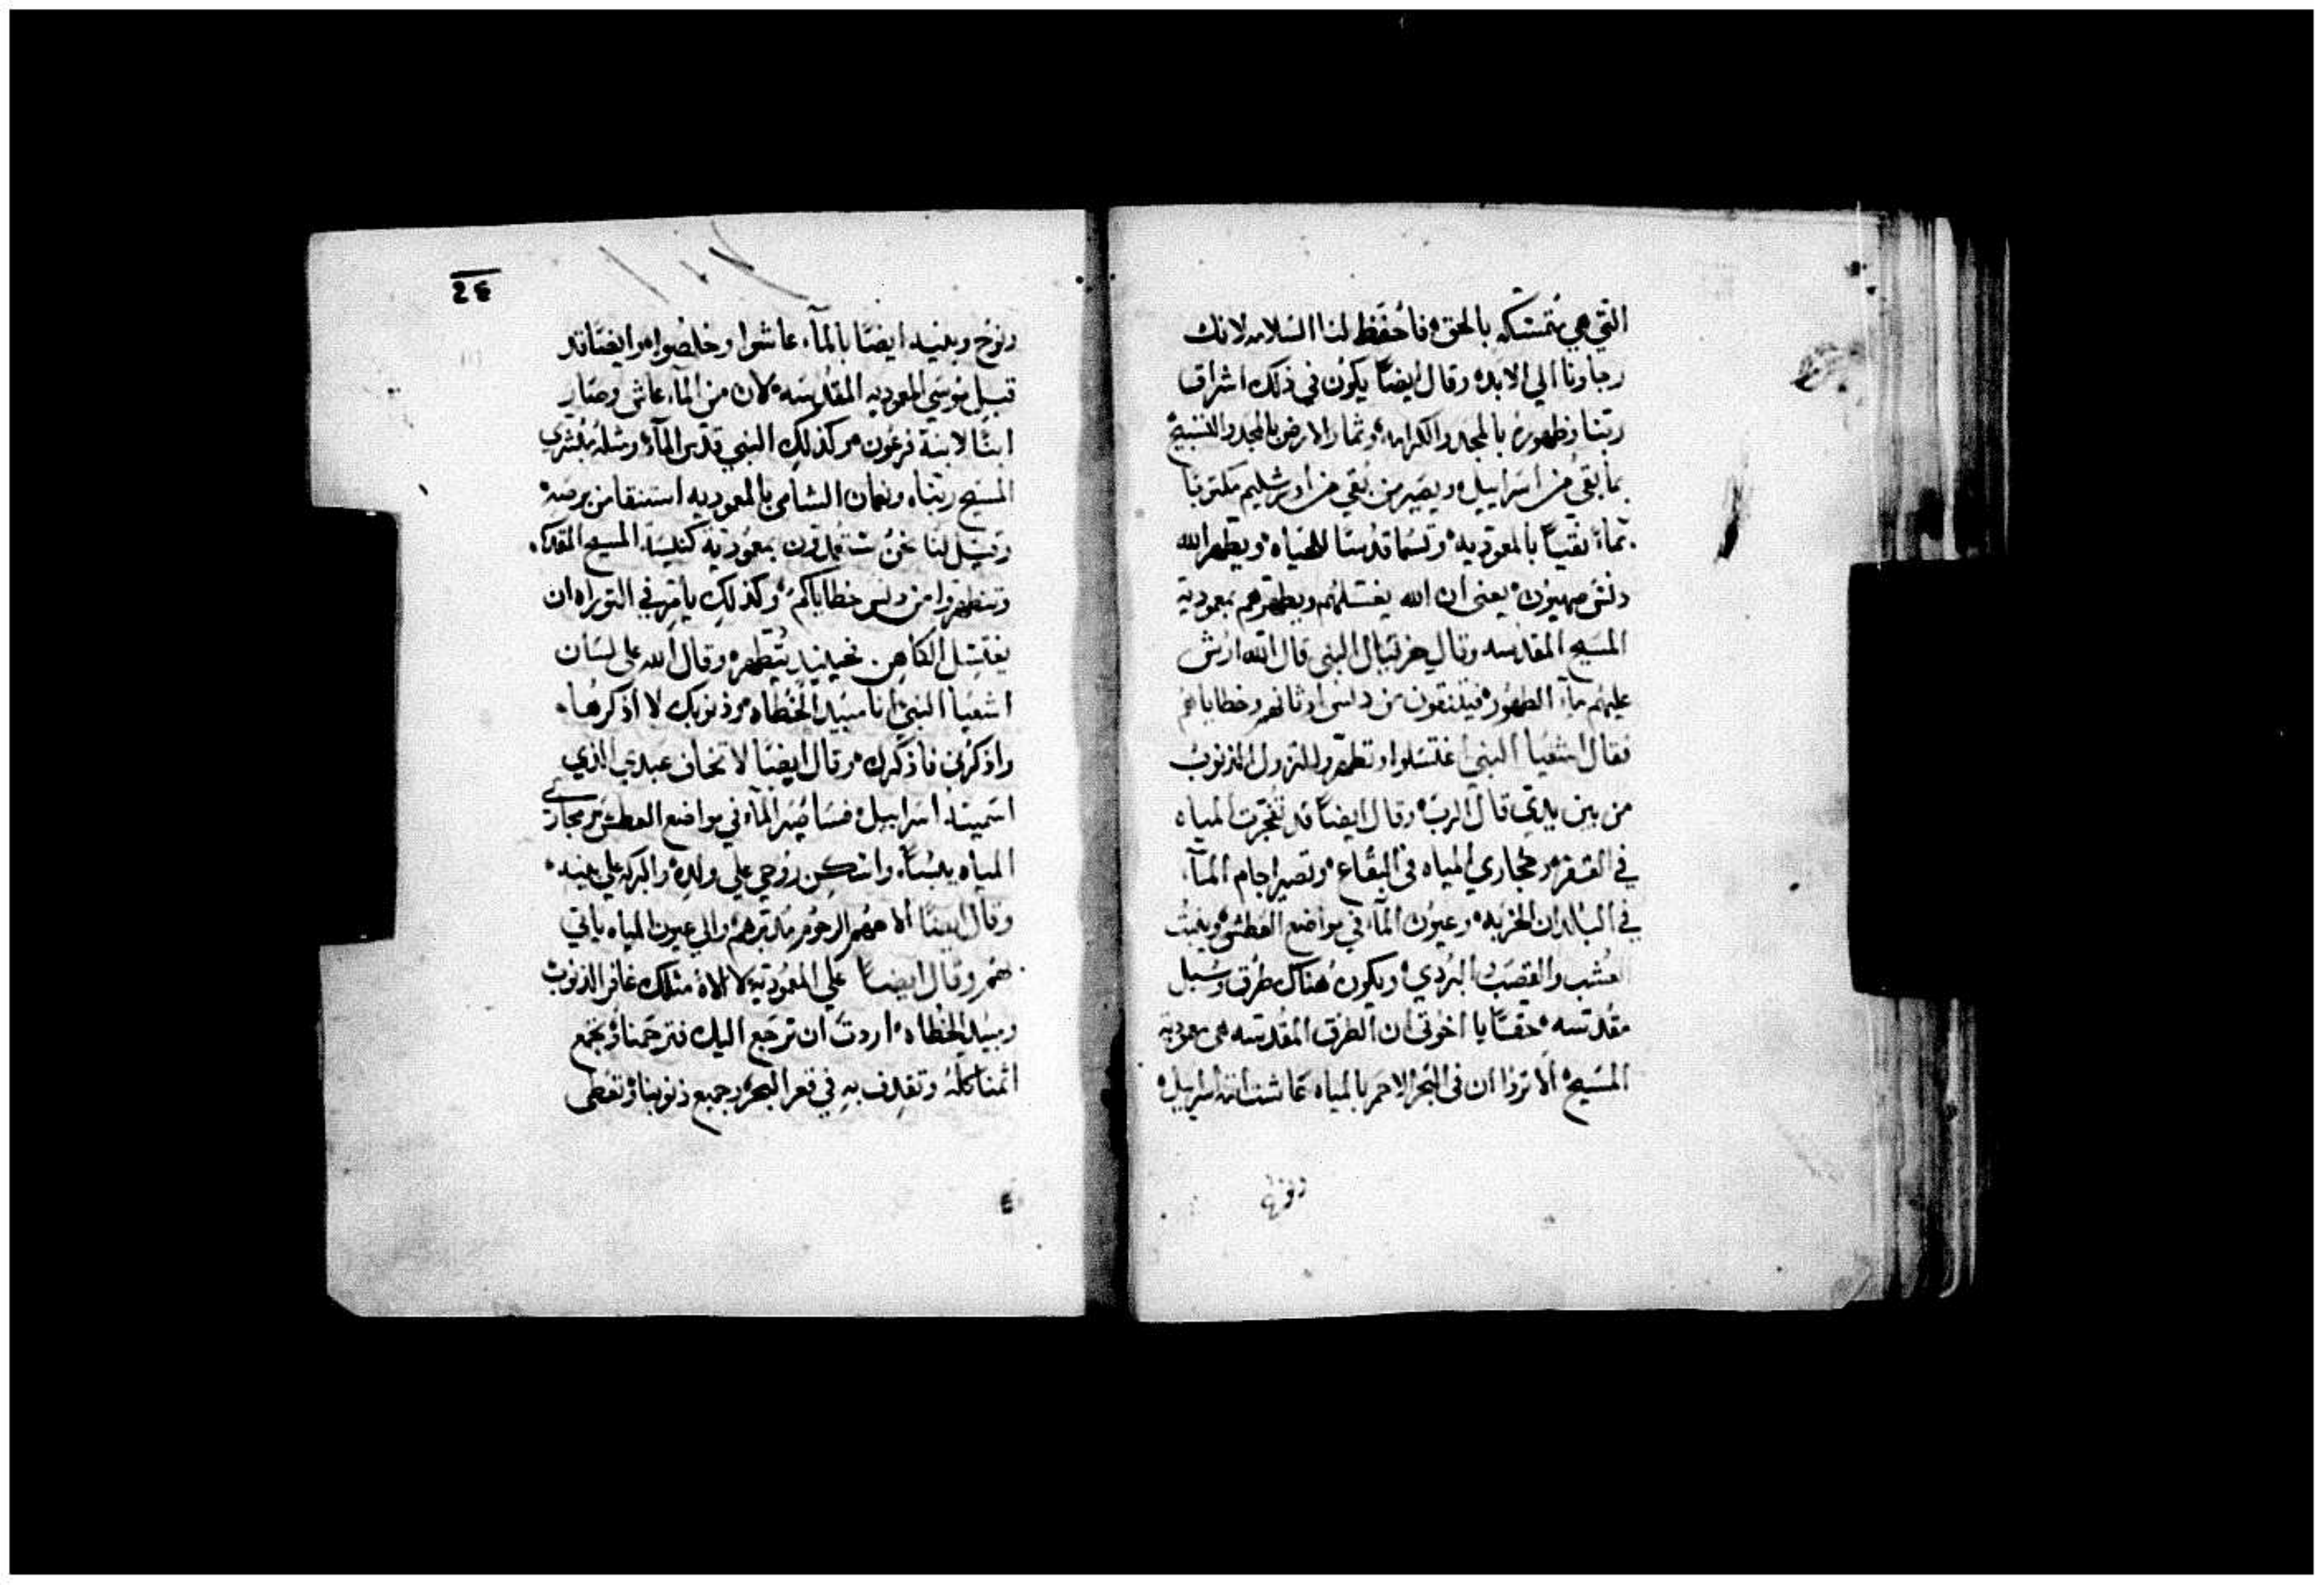 التي هي متمسكه بالحق فاحفظ لنا السلامه لانك
رجاونا الي الابد وقال ايضاً يكون في ذلك اشراق
ربنا وظهوره بالمجد والكرامه وثمار الارض بالمجد والتسبيح
بما بقي من اسراييل ويصير من بقي من اورشليم مكتوبا
نقياً بالمعوديه وتسما قدسا للحياه ويطهر الله
دنس صهيون يعني ان الله يغسلهم ويطهرهم بمعودية
المسيح المقدسه وقال حزقيال النبي قال الله ارش
عليهم مآء الطهور فيتنقون من دنس اوثانهم وخطاياهم
فقال اشعيا النبي اغتسلوا وتطهروا الذنوب
من بين يدي قال الرب وقال ايضاً قد تفجرت المياه
في القفر ومجاري المياه في البقاع وتصير اجام المآء
في البلدان الخربه وعيون المآء في مواضع العطش وينبت
العشب والقصب البردي ويكون هناك طرق وسبل
مقدسه حقاً يا اخوتي ان الطرق المقدسه هي معودية
المسيح الا تروا ان في البحر الاحمر بالمياه عاشت امة اسراييل
ونوح
24
ونوح وبنيه ايضاً بالمآء عاشوا وخلصوا وايضاً قد
قبل موسي المعوديه المقدسه لان من المآء عاش وصار
ابناً لابنة فرعون وكذلك النبي قدس المآء
المسيح ربنا ونعمان الشامي بالمعوديه استنقا من برصه
وقيل لنا نحن بمعودية كنيسة المسيح
وتتطهروا من دنس خطاياكم وكذلك يامر في التوراه ان
يغتسل الكاهن نحينيد يتطهر وقال الله علي لسان
اشعيا النبي انا مبيد الخطاه وذنوبك لا اذكرها
واذكرني فاذكرك وقال ايضاً لا تخاف عبدي الذي
اسميته اسراييل فساصير المآء في مواضع العطش ومجاري
المياه يبساً واسكن روحي علي ولده والبركه علي بنيه
وقال ايضاً الاههم الرحوم مدبرهم والي عيون المياه ياتي
بهم وقال ايضاً علي المعوديه لا الاه مثلك غافر الذنوب
ومبيد الخطاه اردت ان ترجع اليك فترحمنا وتجمع
اثمنا كله وتقدف به في قعر البحر وجميع ذنوبنا وتغطي